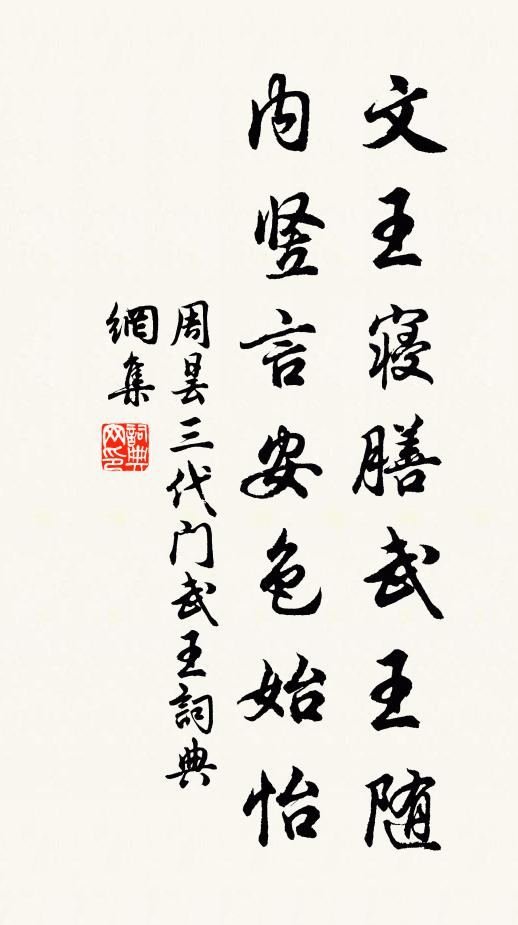 文王寝膳武王随
内竖言安色始怡
周昙三代门武王詞典
網集
詞典网印